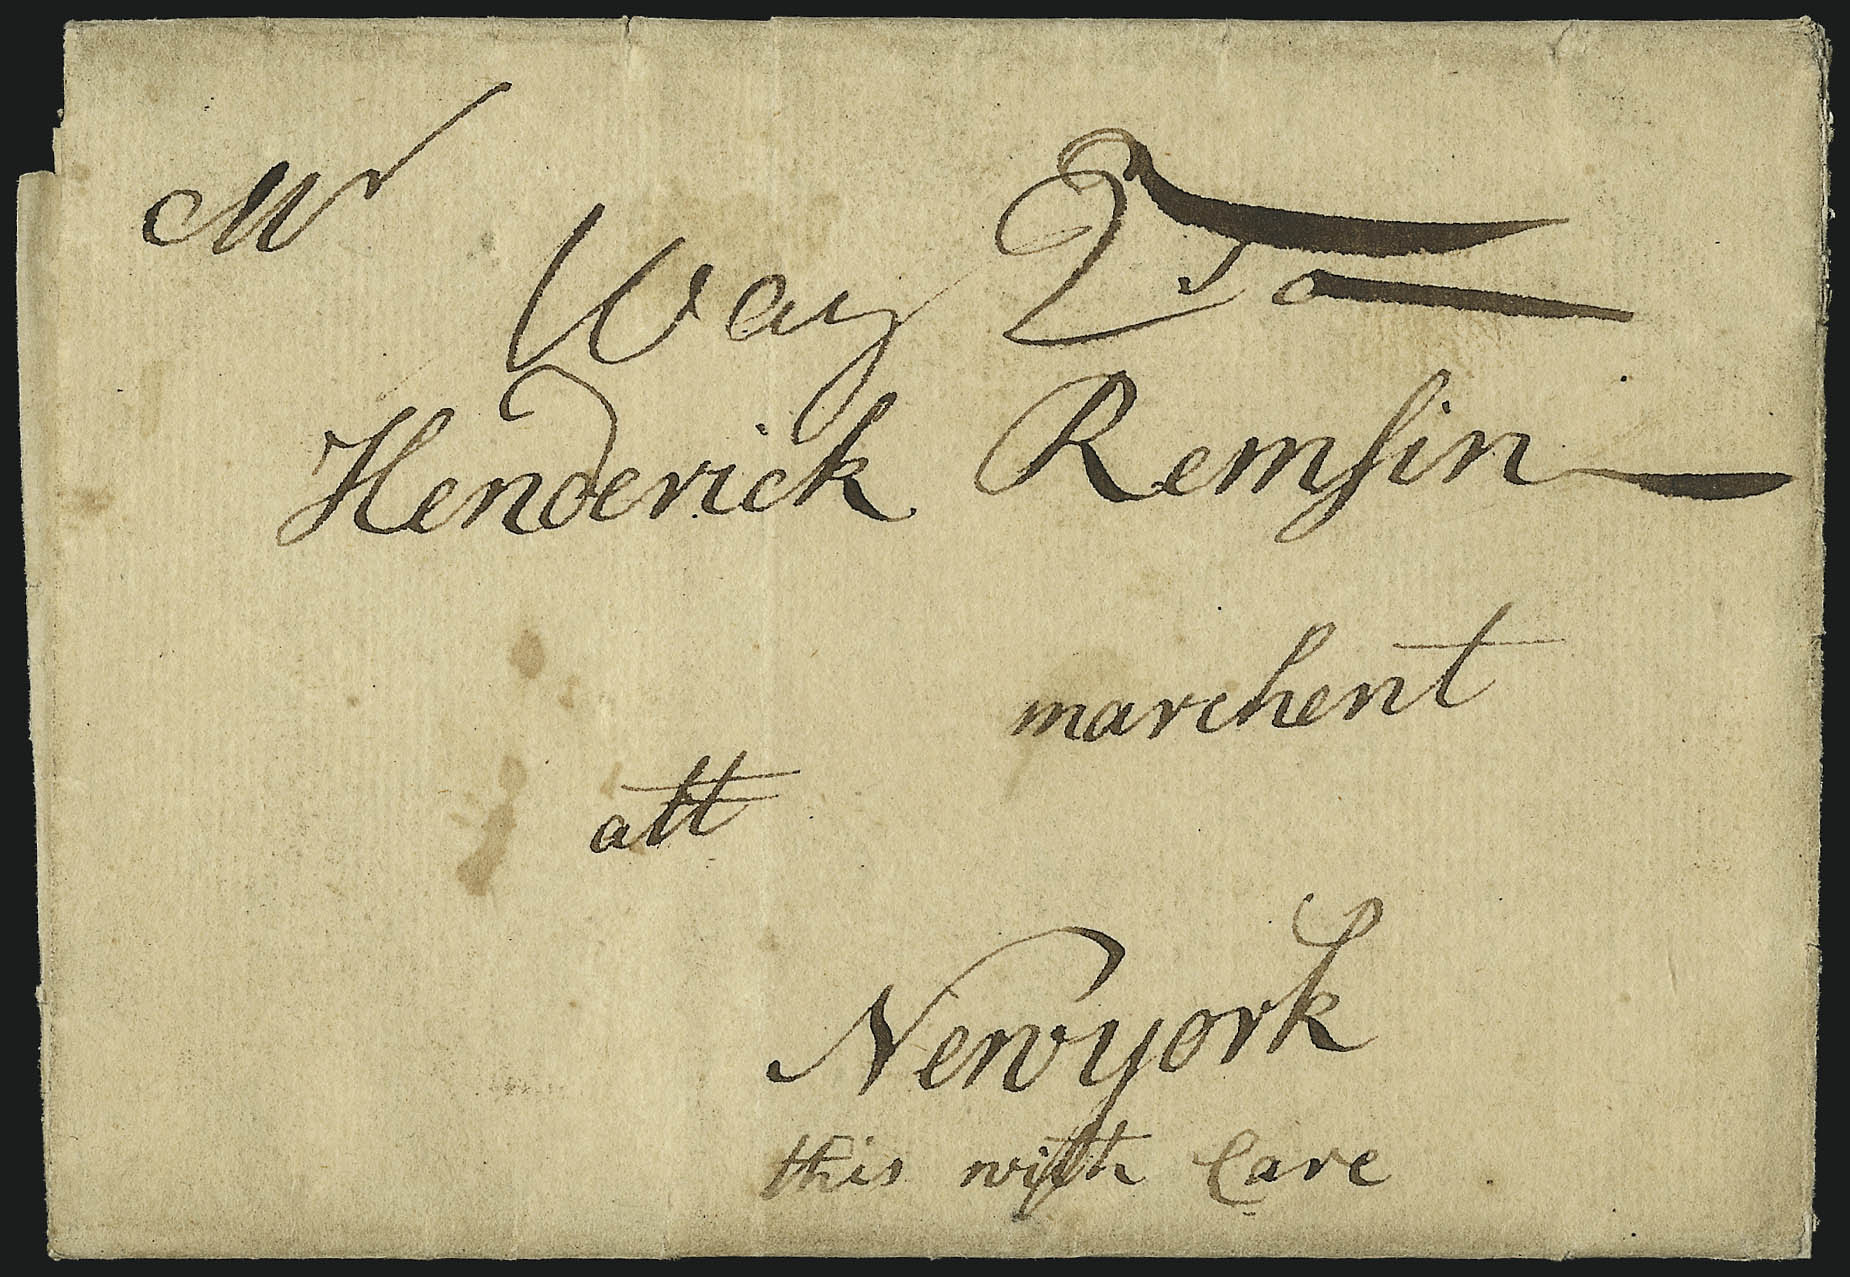 Mr
Way 2
Henderick Remsin
marchent
att
Newyork
this with Care